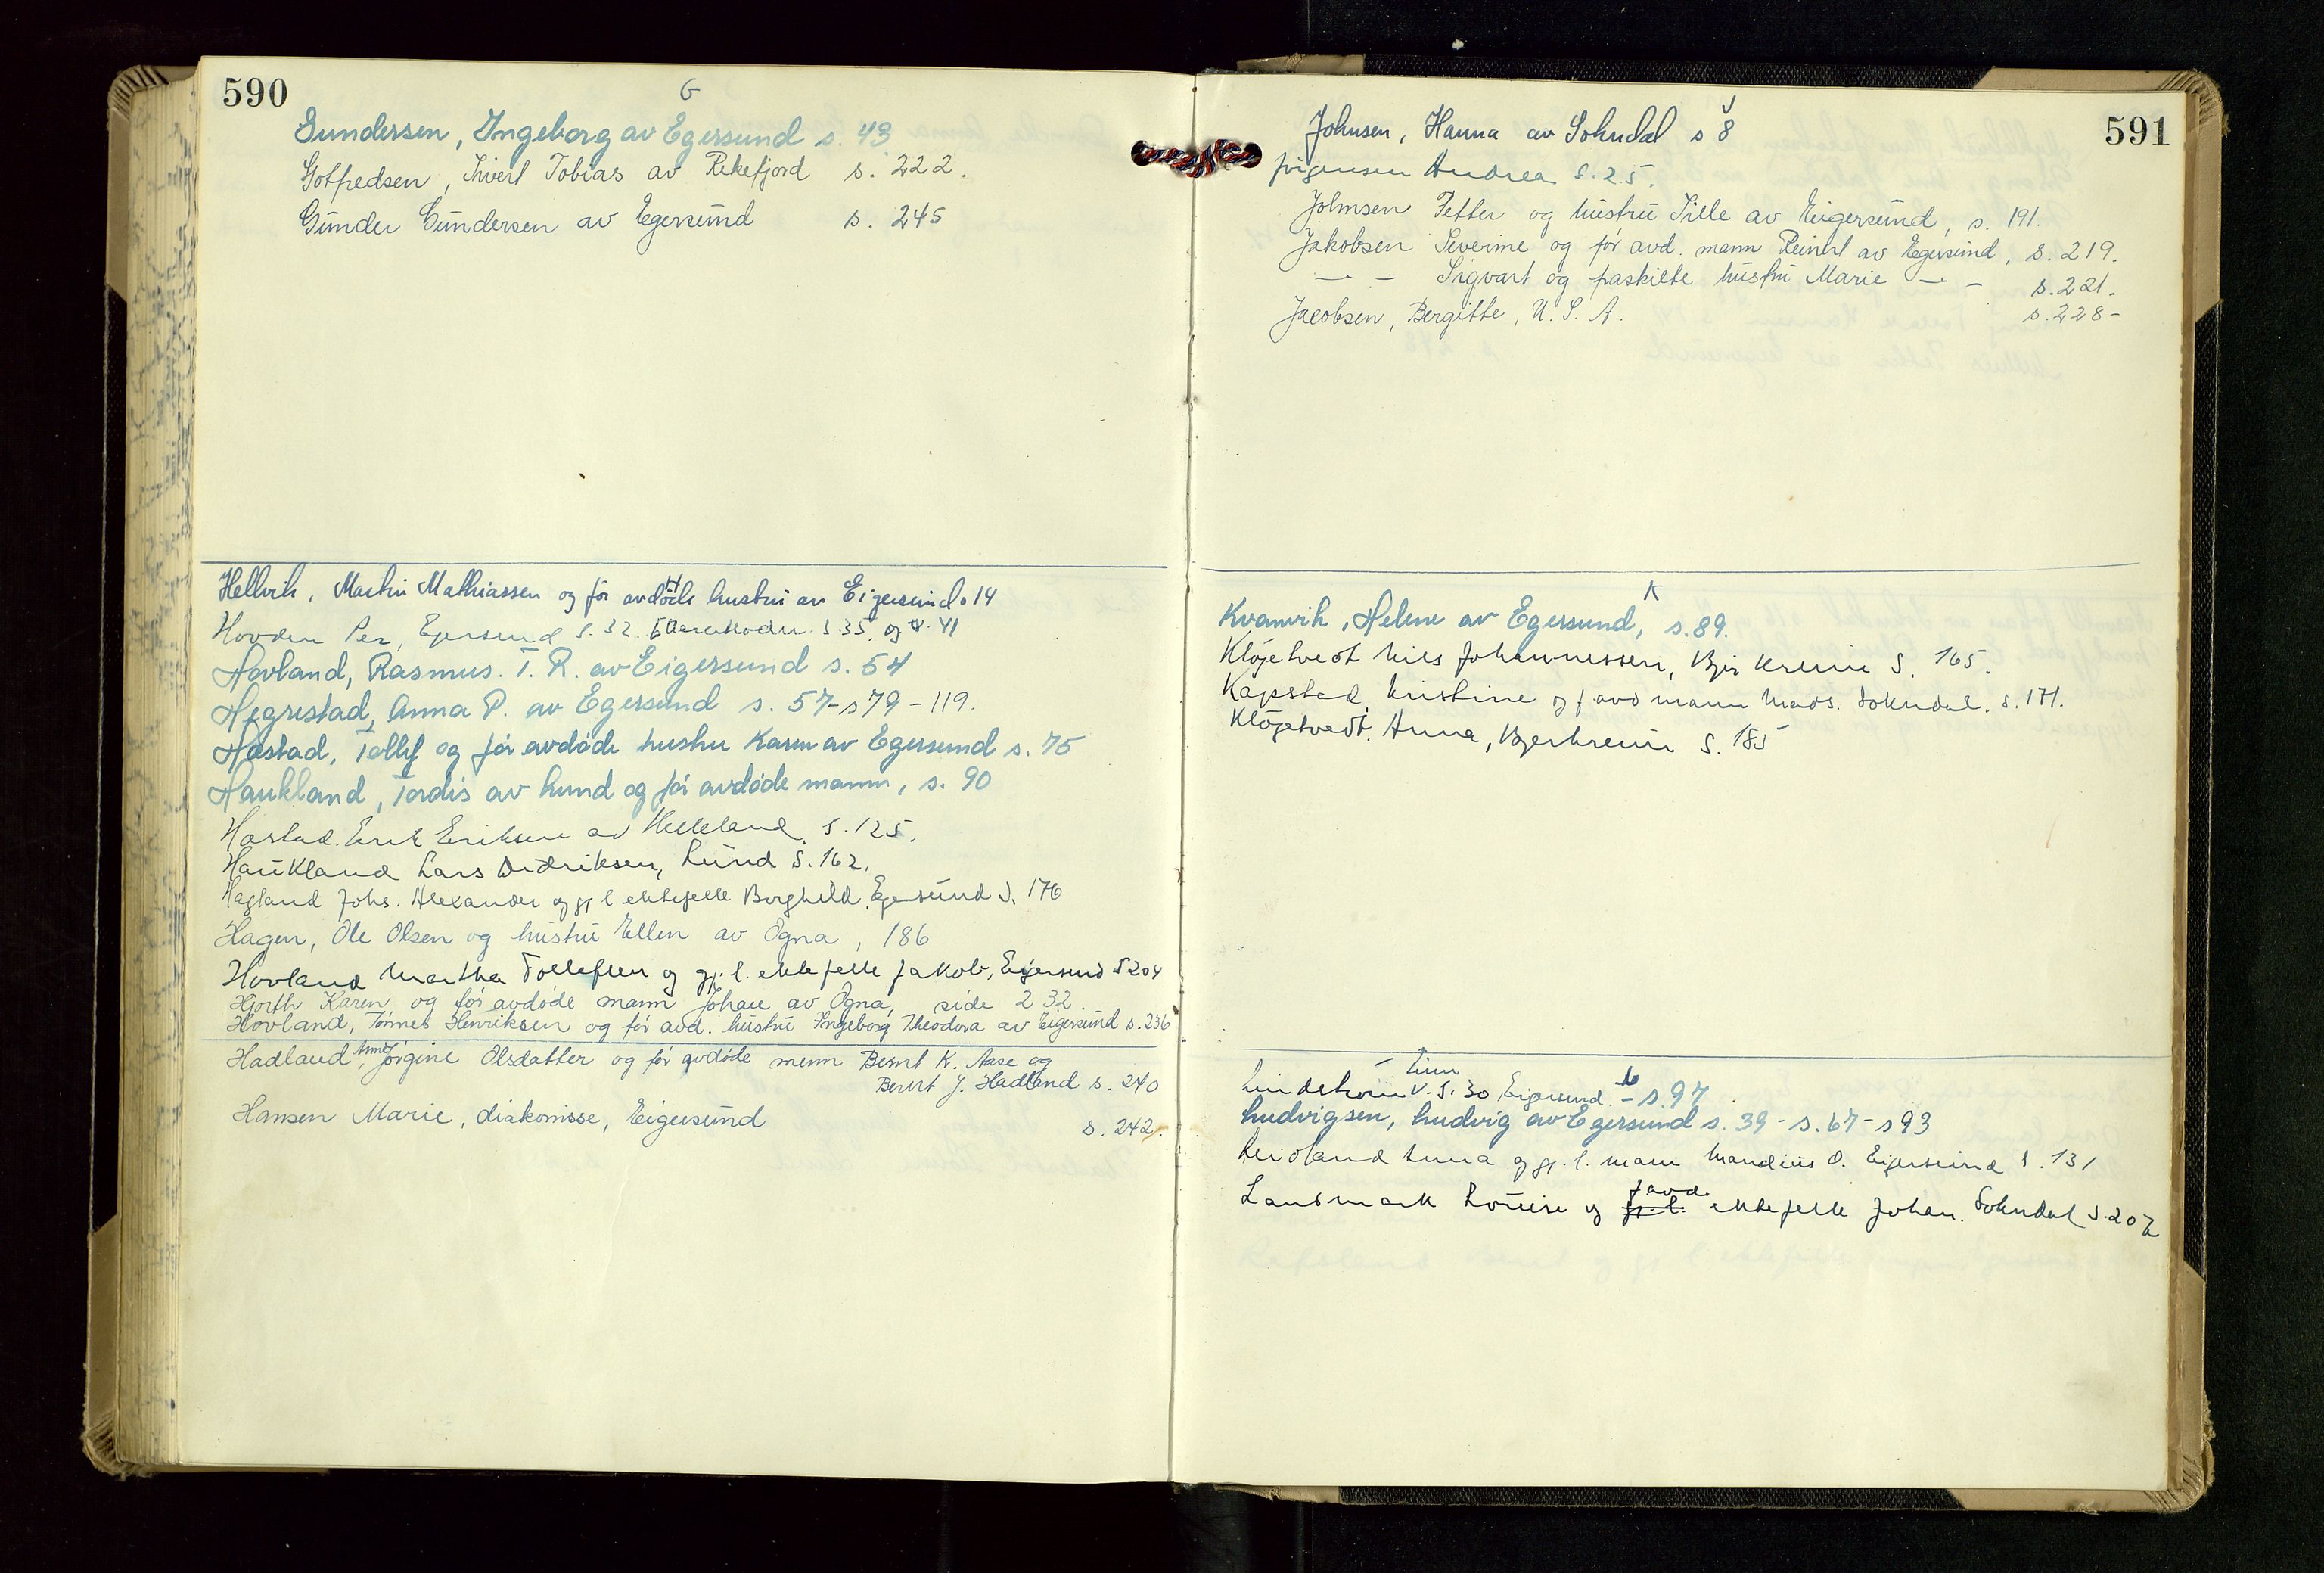 590
G
Gundersen, Ingeborg av Egersund s. 43
Gotfredsen, Sivert Tobias av Rekefjord s. 222.
Gunder Gundersen av Egersund s. 245
H
Hellvik, Martin Mathiassen og for avdöde hustru av Eigersund s 14
Hovden Per, Egersund S. 32. S. 35. og s. 41
Hovland, Rasmus. T. R. av Eigersund s. 54
Hegrestad, Anna P. av Egersund s. 57 - s 79 - 119.
Hæstad, Tollef og for avdøde hustru Karen av Egersund s. 75
Haukland, Tordis av Lund og for avdøde mann, s. 90
Hæstad. Erik Eriksen av Helleland. S. 125.
Haukland Lars Didriksen, Lund S. 162.
Hagland Johs. Alexander og gj l ektefelle Borghild. Egersund S. 176
Hagen, Ole Olsen og hustru Ellen av Ogna, 186
Hovland Martha Tollefsen og gj. l. ektefelle Jakob, Eigersund S 204
Hjorth Karen og for avdøde mann Johan av Ogna, side 232.
Hovland, Tønnes Henriksen og for avd. hustru Ingeborg Theodora av Eigersund s. 236
Hadland, Anne Jørgine Olsdatter og for avdøde menn Bernt K. Aase og
Bernt J. Hadland s. 240
Hansen Marie, diakonisse, Eigersund s. 242.
591
J
Johnsen, Hanna av Sokndal s 8
Jörgensen Andrea S. 25.
Johnsen Petter og hustru Sille av Eigersund, s. 191.
Jakobsen Severine og for avd. mann Reinert av Egersund, s. 219.
— " — Sigvart og fraskilte hustru Marie — " — s. 221.
Jacobsen, Bergitte, U. S. A. s. 228 -
K
Kvamvik, Helene av Egersund, s. 89.
Kløgetvedt Nils Johannessen, Bjerkreim S. 165.
Kapstad Kristine og f avd mann Mads. Sokndal. S. 171.
Kløgetvedt. Anna, Bjerkreim S. 185
L
Lindstrøm V. S. 30 Eigersund. - s. 97
Ludvigsen, Ludvig av Egersund s. 39 - s. 67 - s 93
Leidland Anna og gj. l. mann Mandius O. Eigersund S. 131
Landmark Louise og gj. l. f avd ektefelle Johan. Sokndal S. 207